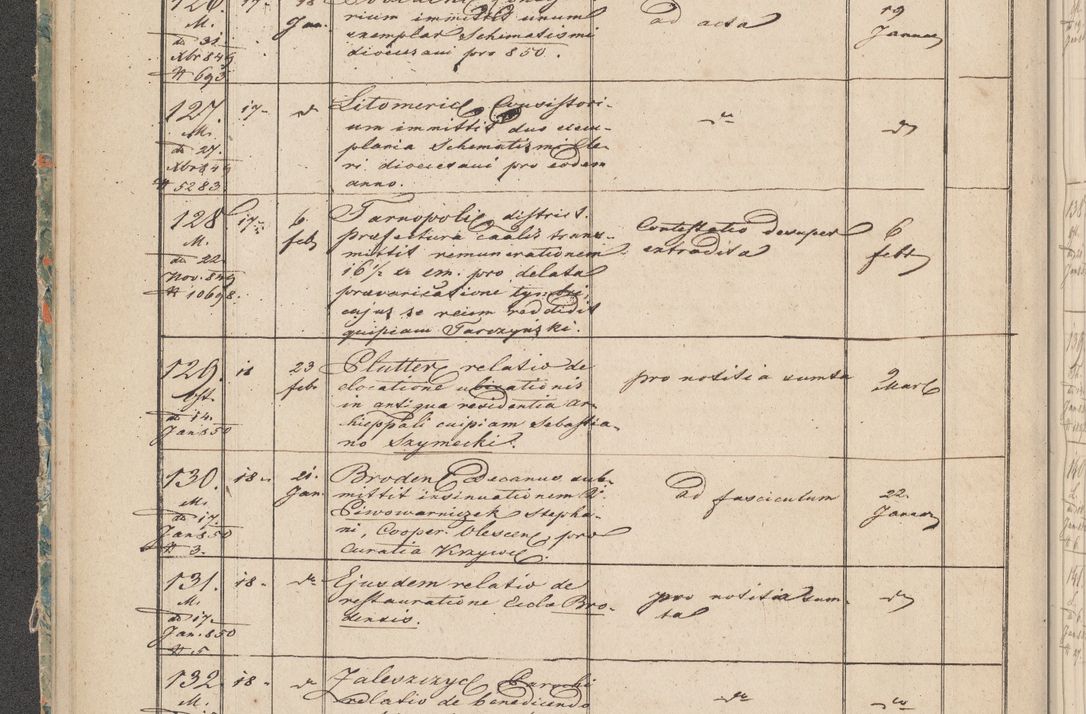 126. 17. 18
Jan.
rium immittit unum
exemplar Schematismi
dioecesani pro 850.
ad acta
19
Januar
M.
do 31
Xbr 849
N 693
127. 17. do
Litomeric Consistori-
um immittit duo exem-
plaria Schematismi Cle-
ri dioecesani pro eodem
anno.
do
do
M.
do 27.
Xbr 849
N 5283.
128 17. 6
feb
Tarnopoli district.
præfectura caalis trans-
mittit remunerationem
16 1/2 xr em. pro delata
prævaricatione
cujus se reum reddidit
quipiam Tarczyński.
Contestatio desuper
extradita
6
febr
M.
do 22
Nov. 849
N 10698.
129. 18 23
feb
Plutter relatio de
elocatione ubicationis
in antiqua residentia ar-
chieppali cuipiam Sebastia-
no Szymecki.
pro notitia sumta
2
Mart
do 14.
Jan 850
130. 18. 21.
Jan
Broden Decanus sub-
mittit insinuationem R.
Piwowarniczek Stepha-
ni, Cooper. Olescen pro
Curatia Krzywe.
ad fasciculum
22.
Januar
M.
do 17.
Jan 850
N 3.
131. 18. do
Ejusdem relatio de
restauratione Eccla Bro-
densis.
pro notitia sum-
ta
do
M.
do 17.
Jan. 850
N 5
132 18. do
Zaleszczyc Parochi
relatio de benedicendo
do
do
M.